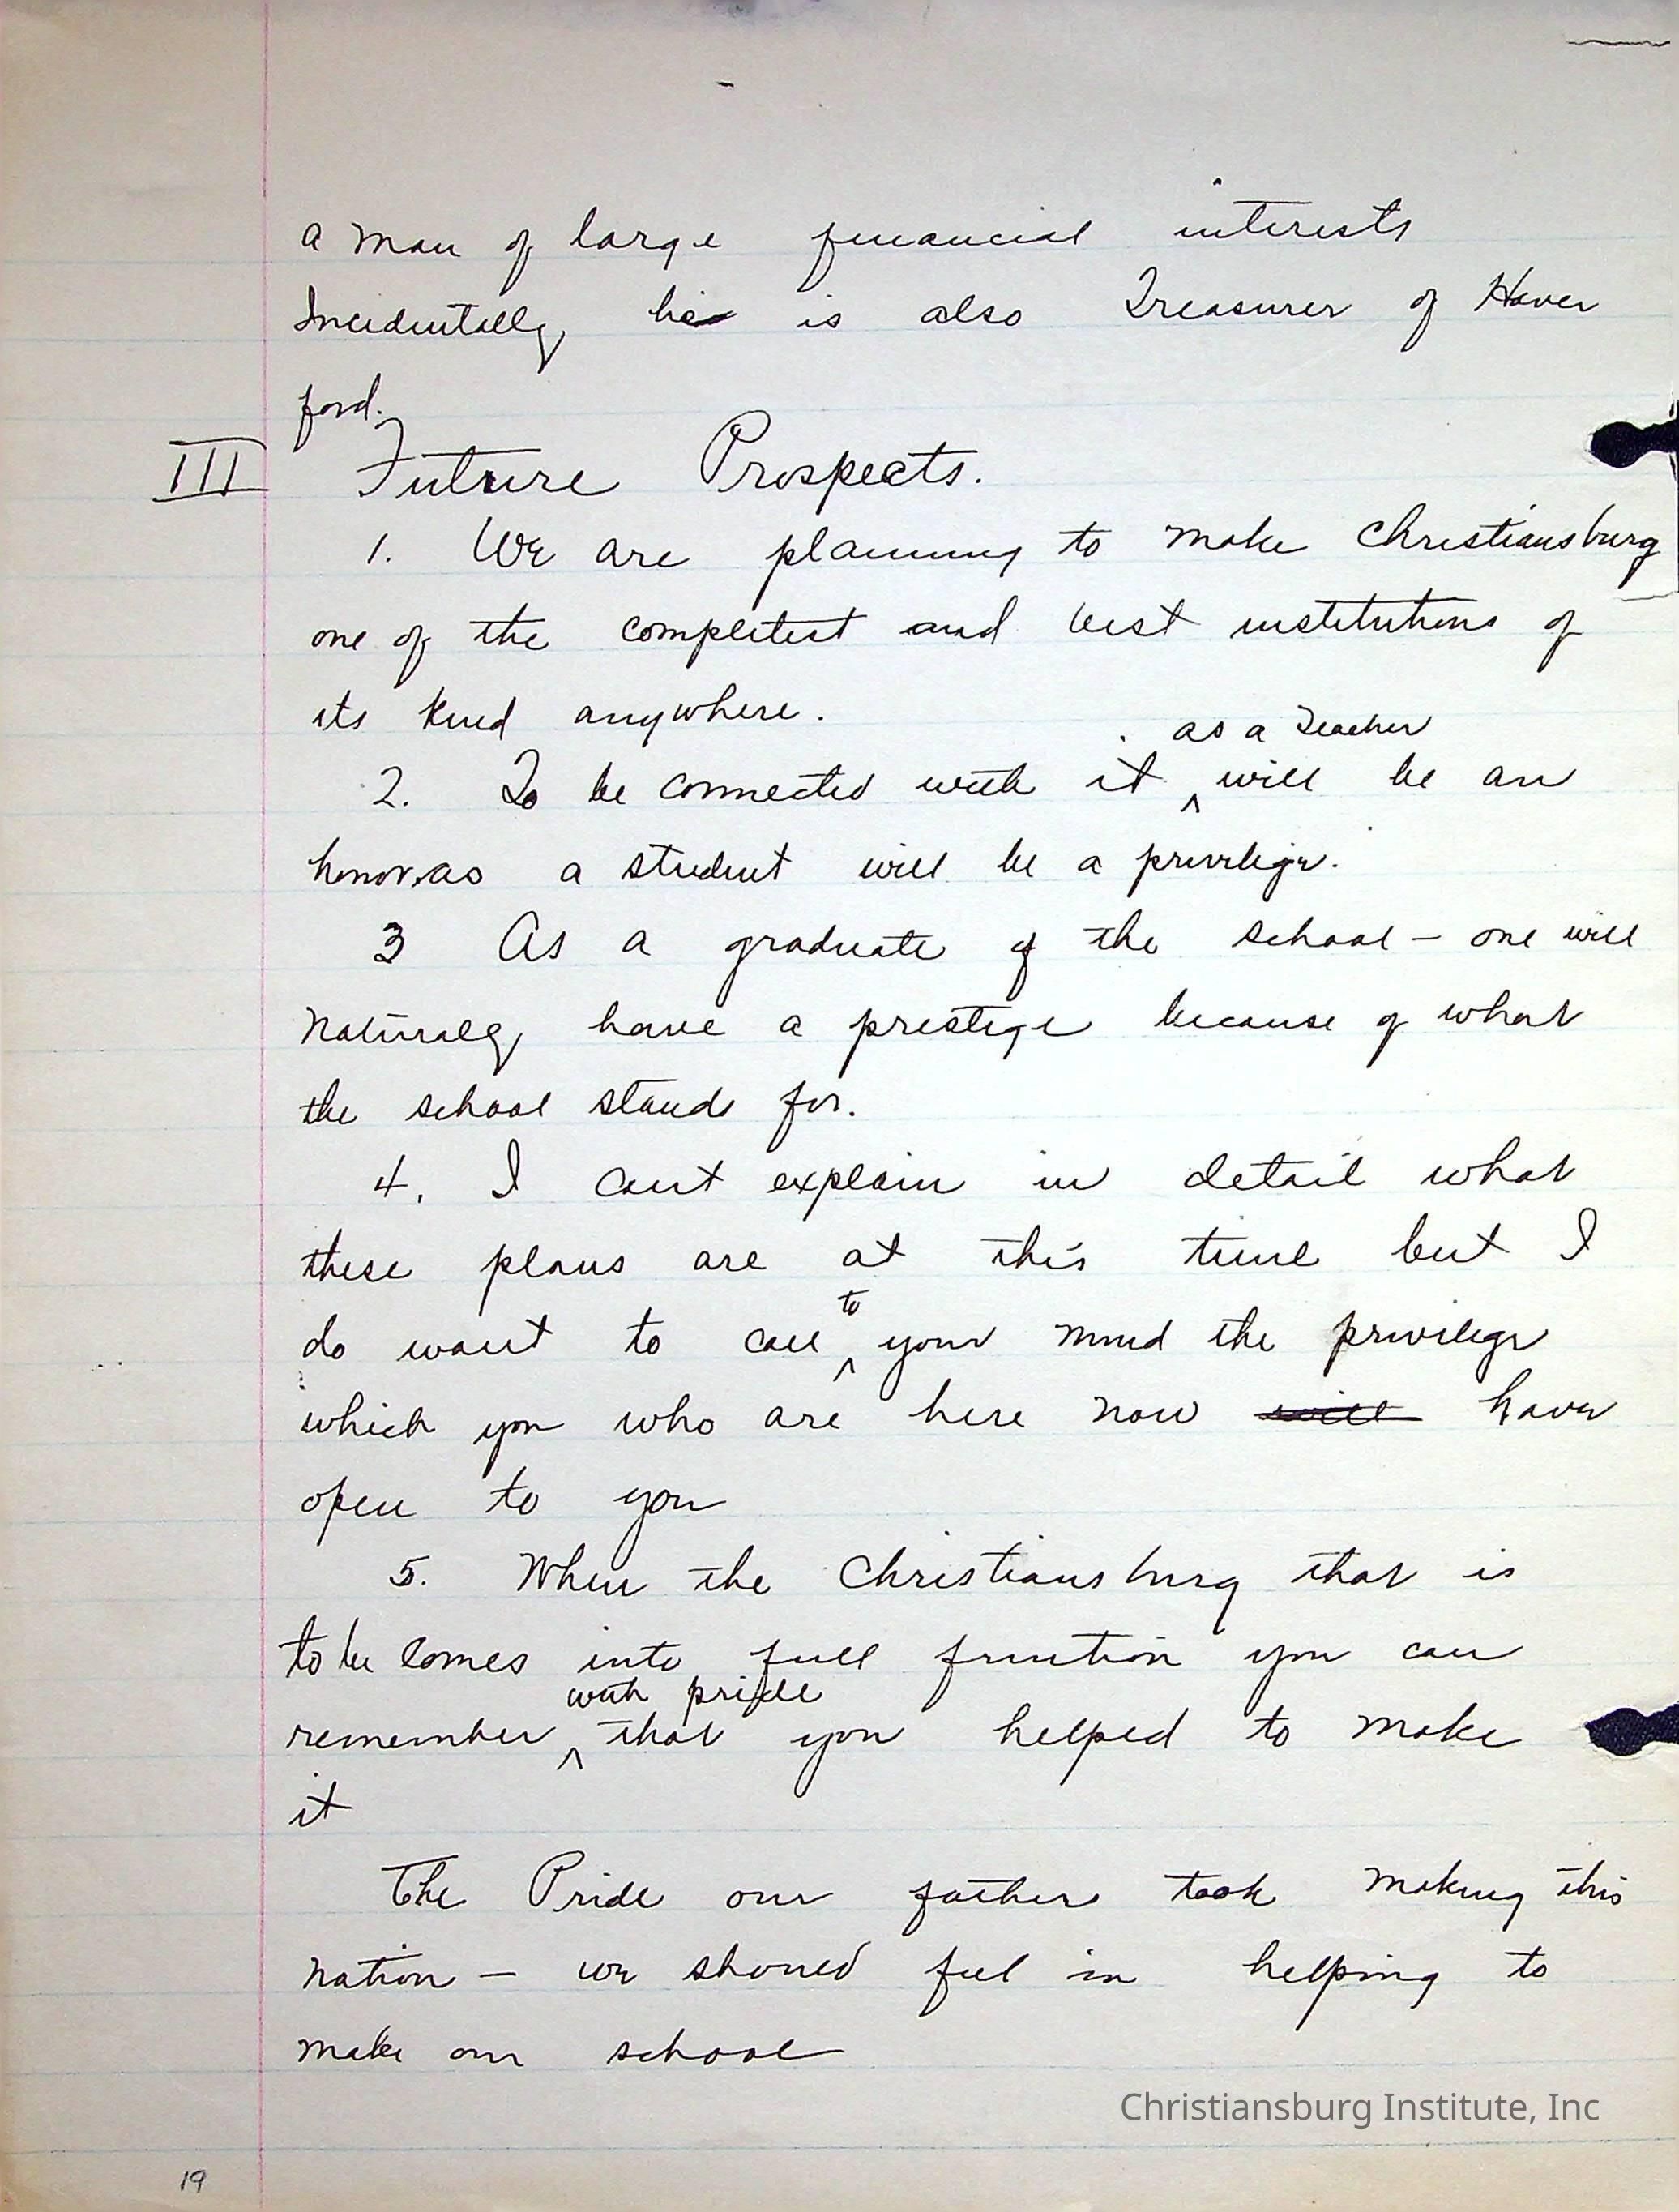 a man of large financial interests
Incidentally he is also Treasurer of Haver
ford.
III Future Prospects.
1. We are planning to make Christiansburg
one of the completest and best institutions of
its kind anywhere.
as a Teacher
2. To be connected with it ^ will be an
honor, as a student will be a privilege.
3 As a graduate of the school - one will
naturally have a prestige because of what
the school stands for.
4. I cant explain in detail what
these plans are at this time but I
to
do want to call ^ your mind the privilege
which you who are here now will have
open to you
5. When the Christiansburg that is
to be comes into full fruition you can
with pride
remember ^ that you helped to make
it
The Pride our fathers took making this
nation - we should feel in helping to
make our school
Christiansburg Institute, Inc
19